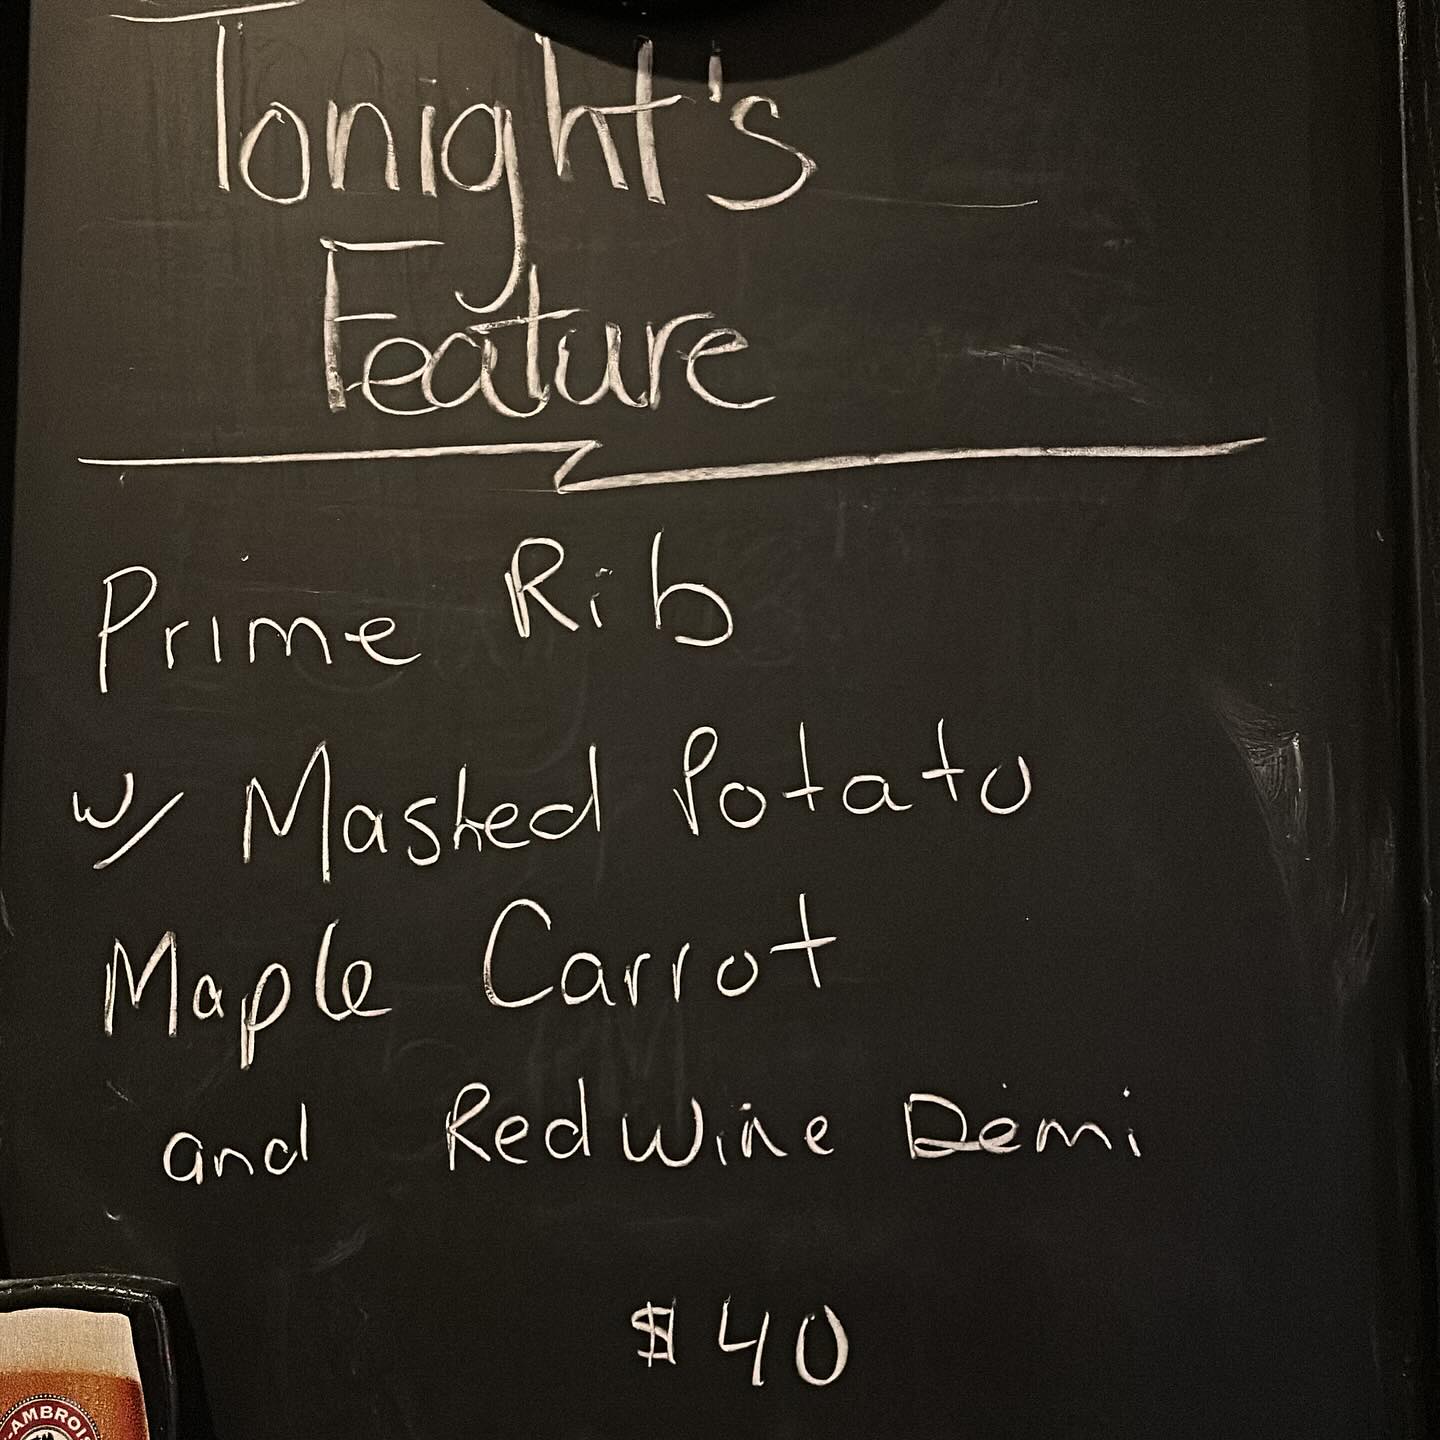 Tonight's
Feature
Prime Rib
w/ Mashed Potato
Maple Carrot
and Red Wine Demi
$40
-AMBROIS